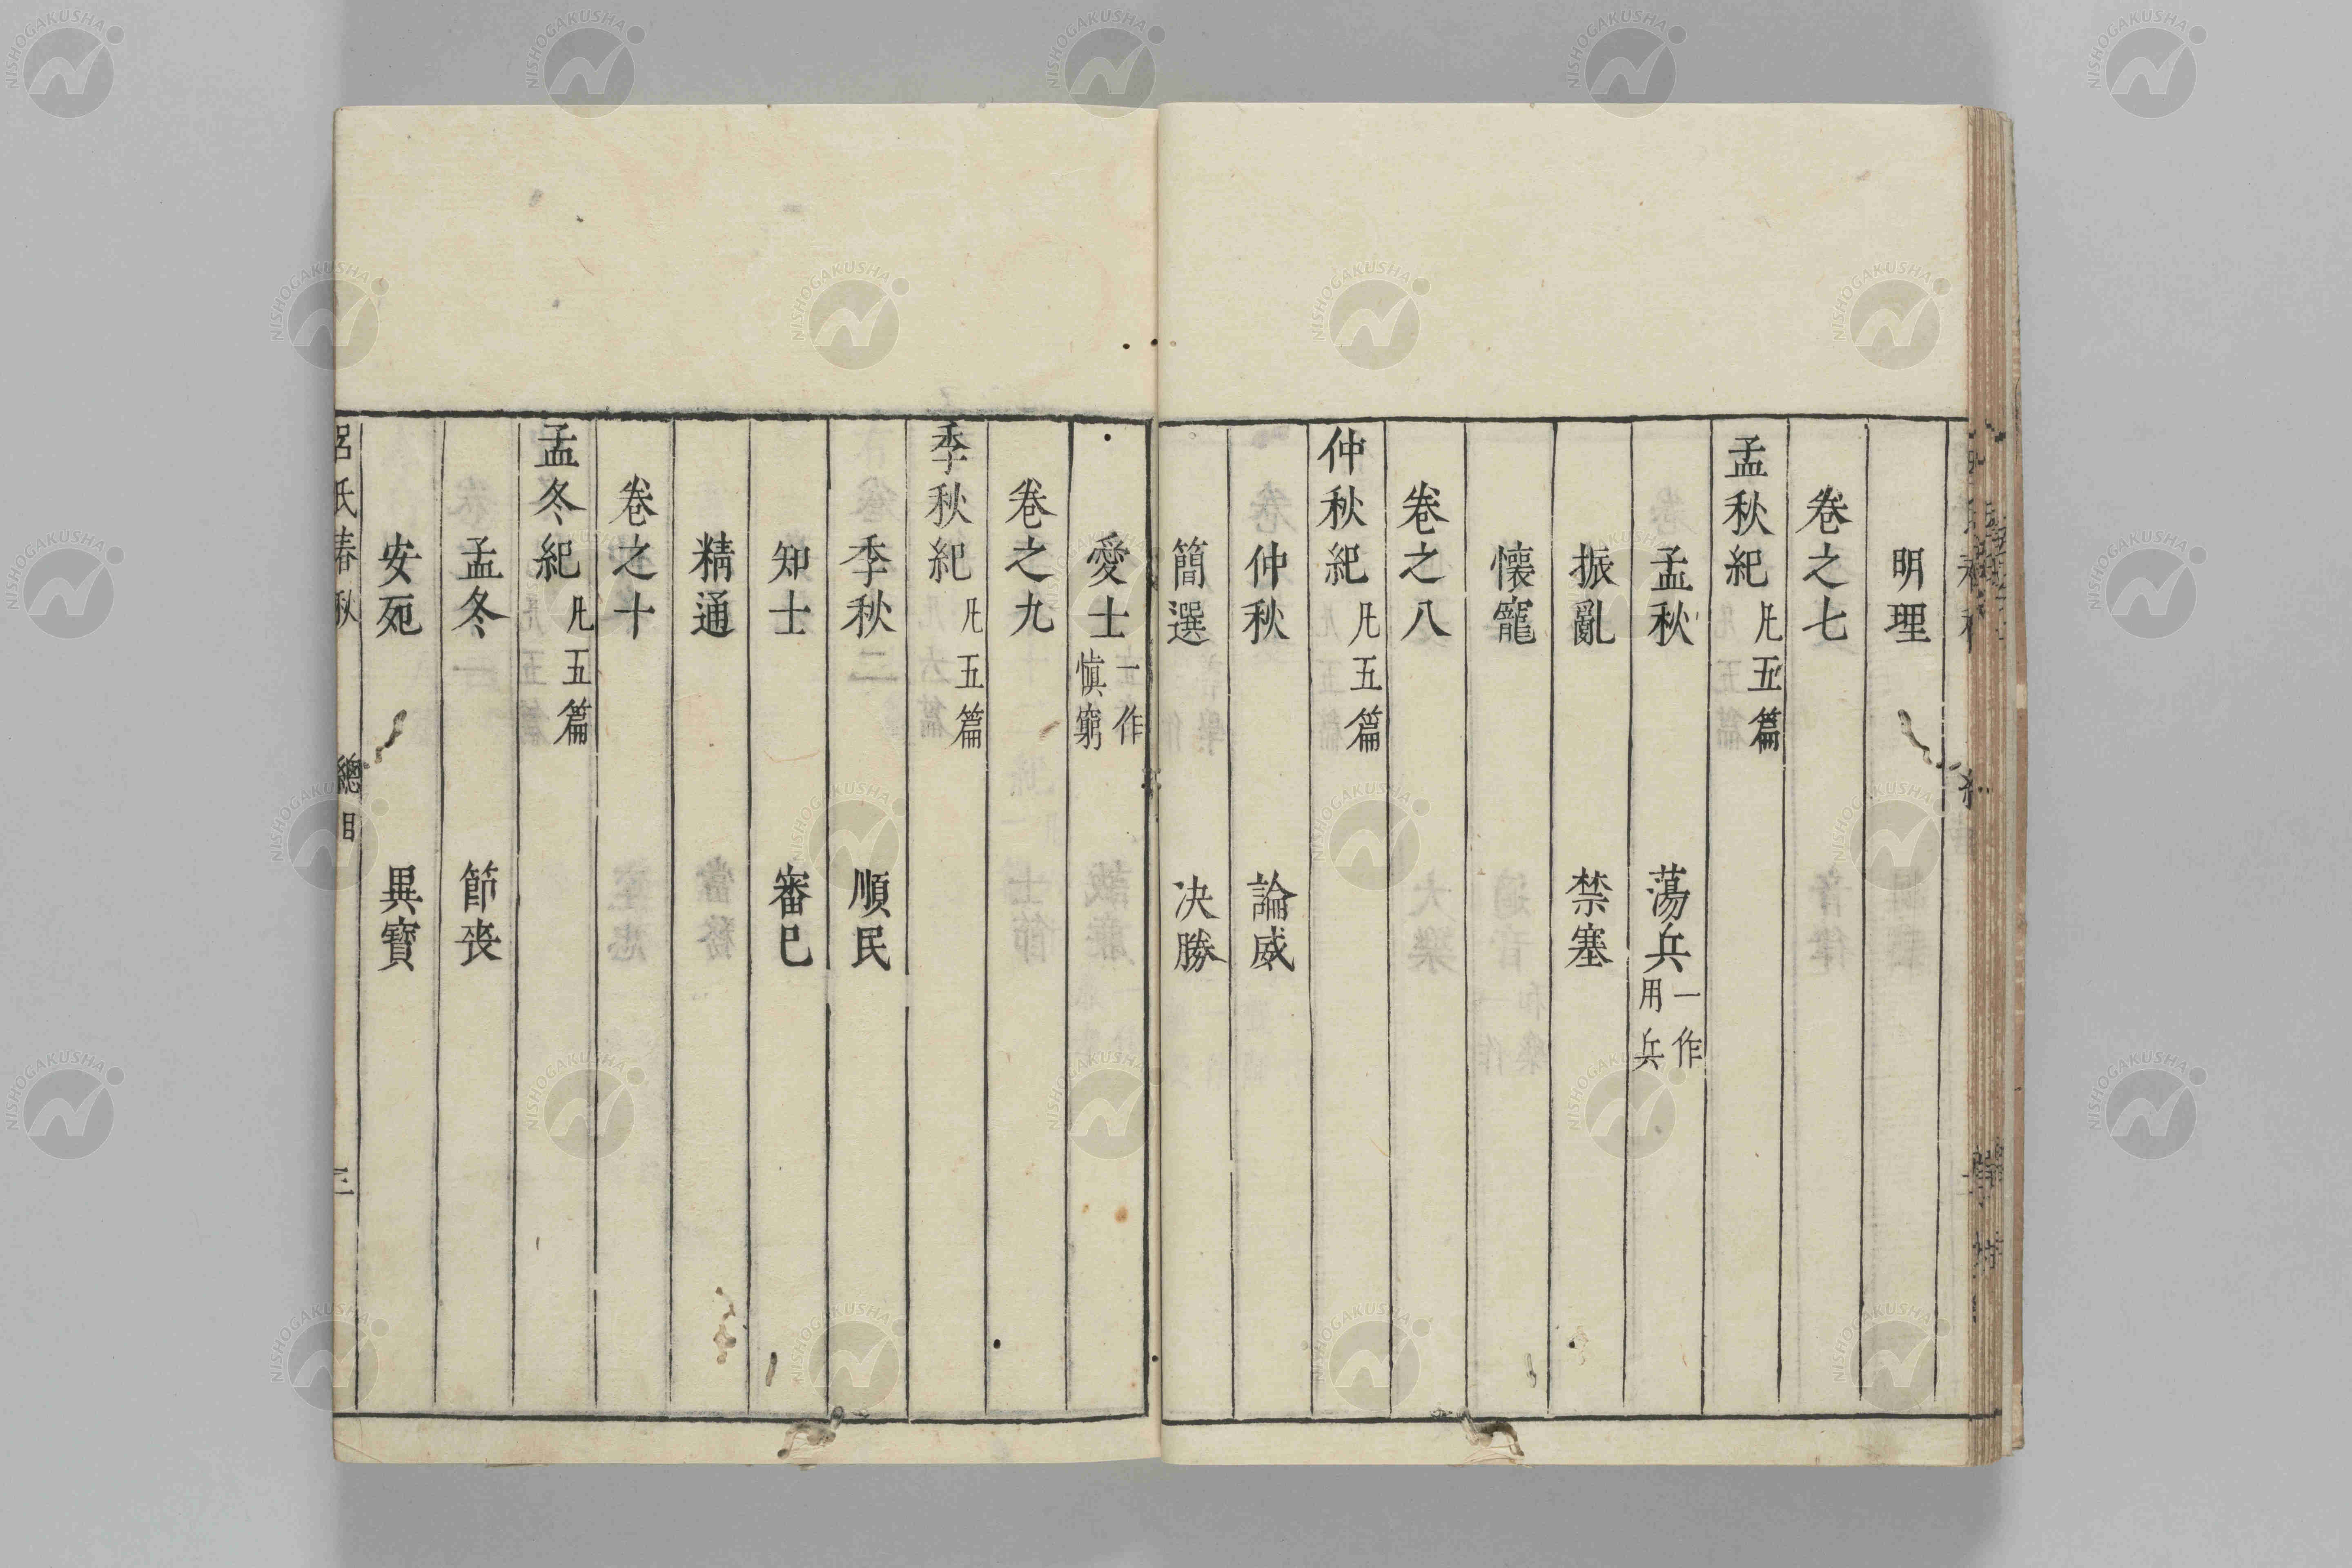 明理
卷之七
孟秋紀凡五篇
孟秋 蕩兵一作用兵
振亂 禁塞
懷寵
卷之八
仲秋紀凡五篇
仲秋 論威
簡選 決勝
愛士一作慎窮
卷之九
季秋紀凡五篇
季秋 順民
知士 審巳
精通
卷之十
孟冬紀凡五篇
孟冬 節喪
安死 異寶
呂氏春秋 總目 三
NISHOGAKUSHA